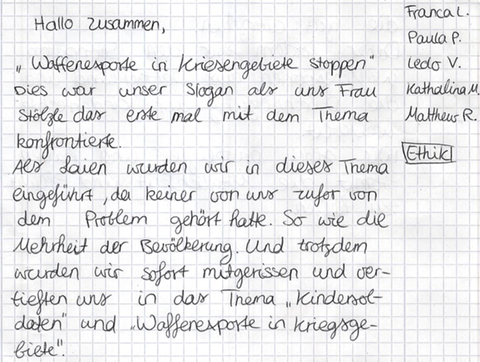 Hallo zusammen,
„Waffenexporte in Kriesengebiete stoppen"
Dies war unser Slogan als uns Frau
Stölzle das erste mal mit dem Thema
konfrontierte.
Als Laien wurden wir in dieses Thema
eingeführt, da keiner von uns zufor von
dem Problem gehört hatte. So wie die
Mehrheit der Bevölkerung. Und trotzdem
wurden wir sofort mitgerissen und ver-
tieften uns in das Thema „Kindersol-
daten" und „Waffenexporte in Kriegsge-
biete".
Franca L.
Paula P.
Ledo V.
Kathalina M.
Matthew R.
Ethik